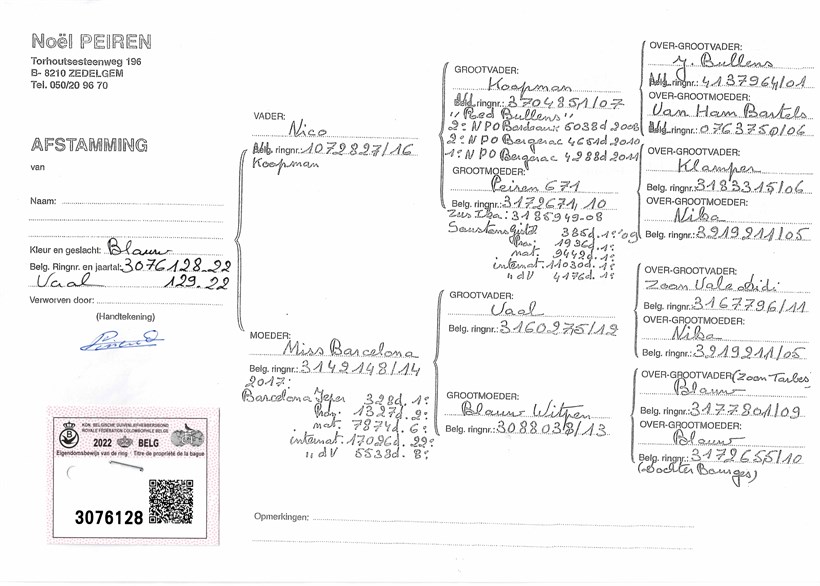 Noël PEIREN
Torhoutsesteenweg 196
B- 8210 ZEDELGEM
Tel. 050/20 96 70
AFSTAMMING
van
Naam:
Kleur en geslacht: Blauw
Belg. Ringnr. en jaartal: 3076128-22
Vaal 129-22
Verworven door:
(Handtekening)
KON. BELGISCHE DUIVENLIEFHEBBERSBOND
ROYALE FÉDÉRATION COLOMBOPHILE BELGE
2022 BELG
Eigendomsbewijs van de ring - Titre de propriété de la bague
3076128
VADER:
Nico
ringnr.: 1072827/16
Koopman
MOEDER:
Miss Barcelona
Belg. ringnr.: 3142148/14
2017:
Barcelona Ieper 328d. 1e
Prov. 1327d. 2e
nat. 7874d. 6e
internat. 17026d. 22e
" dV 5538d. 8e
GROOTVADER:
Koopman
ringnr.: 3704851/07
"Red Bullens"
2e NPO Bordeaux: 5038d 2008
2e NPO Bergerac 4651d 2010
1e NPO Bergerac 4288d 2011
GROOTMOEDER:
Peiren 671
Belg. ringnr.: 3172671, 10
Zus : 3185949-08
385d. 1e '09
1936d. 1e
nat. 9442d. 1e
internat. 11030d. 1e
" dV 4176d. 1e
GROOTVADER:
Vaal
Belg. ringnr.: 3160275/12
GROOTMOEDER:
Blauw Witpen
Belg. ringnr.: 3088038/13
OVER-GROOTVADER:
J. Bullens
ringnr.: 4137964/01
OVER-GROOTMOEDER:
Van Ham Bartels
ringnr.: 0763750/06
OVER-GROOTVADER:
Klamper
Belg. ringnr.: 3183315/06
OVER-GROOTMOEDER:
Nika
Belg. ringnr.: 3219211/05
OVER-GROOTVADER:
Zoon Vale Didi
Belg. ringnr.: 3167796/11
OVER-GROOTMOEDER:
Nika
Belg. ringnr.: 3219211/05
OVER-GROOTVADER: (Zoon Tarbes
Blauw
Belg. ringnr.: 3177801/09
OVER-GROOTMOEDER:
Blauw
Belg. ringnr.: 3172655/10
(Dochter Bourges)
Opmerkingen: